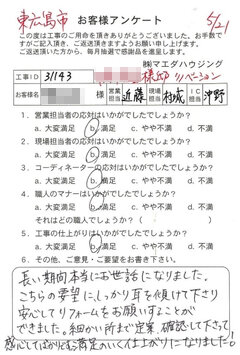 東広島市
お客様アンケート
5/21
この度は工事のご用命を頂きありがとうございました。お手数で
すがご記入頂き、ご返送頂きますようお願い申し上げます。
ご返送頂いた方から、毎月抽選で感謝品を進呈します。
㈱マエダハウジング
工事ID 31143 様邸リノベーション
お客様名 営業担当 近藤 現場担当 村成 IC担当 沖野
1. 営業担当者の応対はいかがでしたでしょうか?
a. 大変満足 b. 満足 c. やや不満 d. 不満
2. 現場担当者の応対はいかがでしたでしょうか?
a. 大変満足 b. 満足 c. やや不満 d. 不満
3. コーディネーターの応対はいかがでしたでしょうか?
a. 大変満足 b. 満足 c. やや不満 d. 不満
4. 職人のマナーはいかがでしたでしょうか?
a. 大変満足 b. 満足 c. やや不満 d. 不満
それはどの職人でしょうか?( )
5. 工事の仕上がりはいかがでしたでしょうか?
a. 大変満足 b. 満足 c. やや不満 d. 不満
6. その他、ご意見・ご要望をお書き下さい。
長い期間本当にお世話になりました。
こちらの要望に、しっかり耳を傾けて下さり
安心してリフォームをお願いすることが
できました。細かい所まで定案、確認して下さって
感心してばかりでした満足のいく仕上がりになりました!